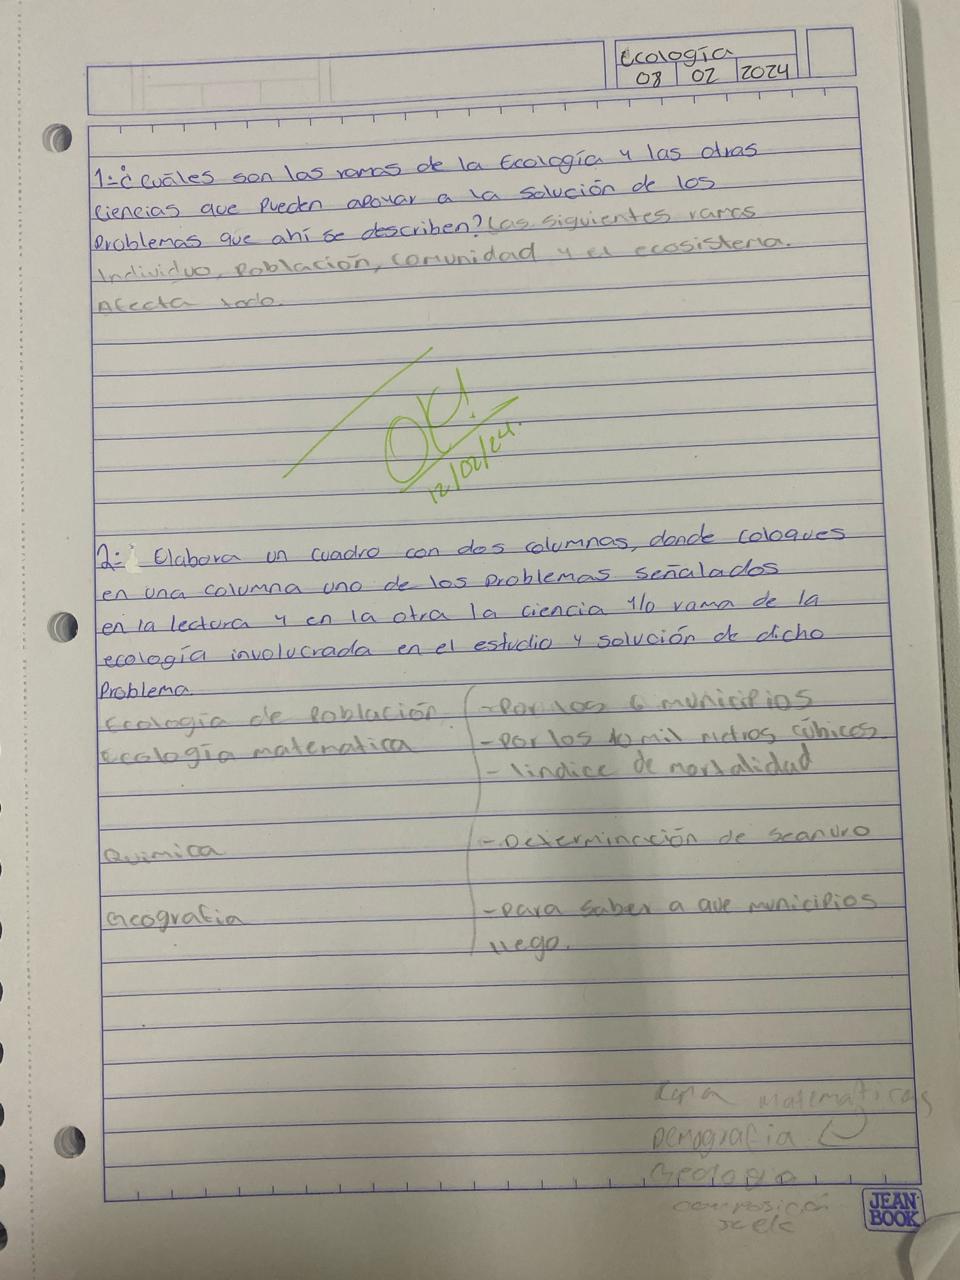 Ecología
08 02 2024
1=¿Cuáles son las ramas de la Ecología y las otras
Ciencias que pueden apoyar a la solución de los
Problemas que ahí se describen? Las siguientes ramas
Individuo, Población, Comunidad y el ecosistema.
Afecta todo.
OK!
12/02/24.
2= Elabora un cuadro con dos columnas, donde coloques
en una columna uno de los problemas señalados
en la lectura y en la otra la ciencia y/o rama de la
ecología involucrada en el estudio y solución de dicho
Problema.
Ecología de Población. -Por los 6 municipios
Ecología matematica -Por los 10 mil metros cúbicos
- Indice de mortalidad
Quimica -Determinación de
Geografia -Para saber a que municipios
llego.
matematicas
Demografia
Geologia
composición
JEAN
BOOK